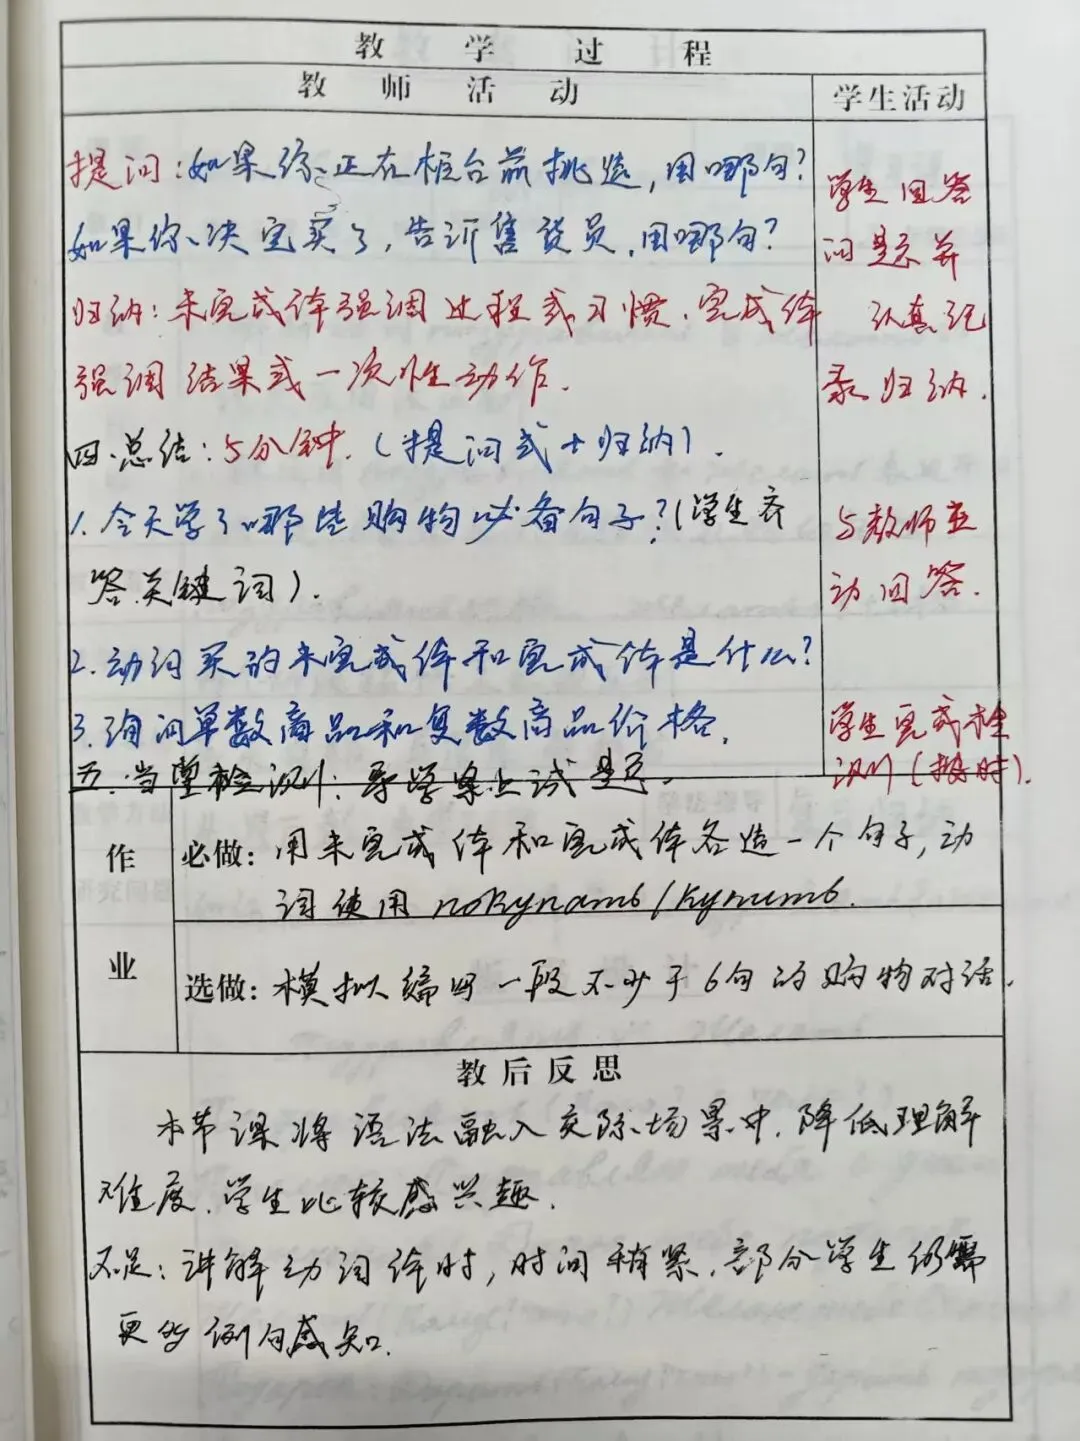 教学过程
教师活动
学生活动
提问：如果你正在柜台前挑选，用哪句？
如果你决定买了，告诉售货员，用哪句？
归纳：未完成体强调过程或习惯，完成体
强调结果或一次性动作.
四.总结：5分钟.（提问式+归纳）.
1.今天学了哪些购物必备句子？（学生齐
答关键词）.
2.动词买的未完成体和完成体是什么？
3.询问单数商品和复数商品价格.
五.当堂检测：导学案上试题.
学生回答
问题并
认真记
录归纳.
与教师互
动回答.
学生完成检
测（按时）.
作业
必做：用未完成体和完成体各造一个句子，动
词使用 покупать/купить.
选做：模拟编写一段不少于6句的购物对话.
教后反思
本节课将语法融入交际场景中.降低理解
难度.学生比较感兴趣.
不足：讲解动词体时，时间稍紧.部分学生仍需
更多例句感知.